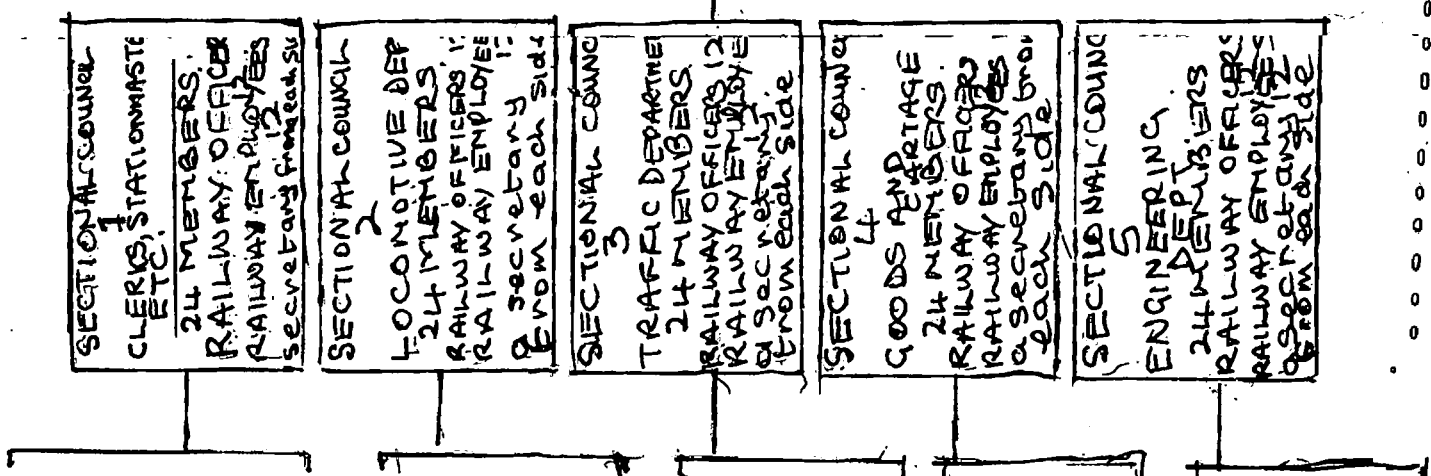 SECTIONAL COUNCIL
1
CLERKS, STATIONMASTE
ETC.
24 MEMBERS.
RAILWAY OFFICER
RAILWAY EMPLOYEES 12
secretary from each si
SECTIONAL COUNCIL
2
LOCOMOTIVE DEP
24 MEMBERS
RAILWAY OFFICERS 1
RAILWAY EMPLOYEE
a secretary
from each side
SECTIONAL COUNC
3
TRAFFIC DEPARTMEN
24 MEMBERS.
RAILWAY OFFICERS 12
RAILWAY EMPLOYE
a secretary
from each side
SECTIONAL COUNCI
4
GOODS AND
CARTAGE
24 MEMBERS.
RAILWAY OFFICERS
RAILWAY EMPLOYEES
a secretary from
each side
SECTIONAL COUNC
5
ENGINEERING
DEPT
24 MEMBERS
RAILWAY OFFICERS
RAILWAY EMPLOYEE
a secretary 12
from each side